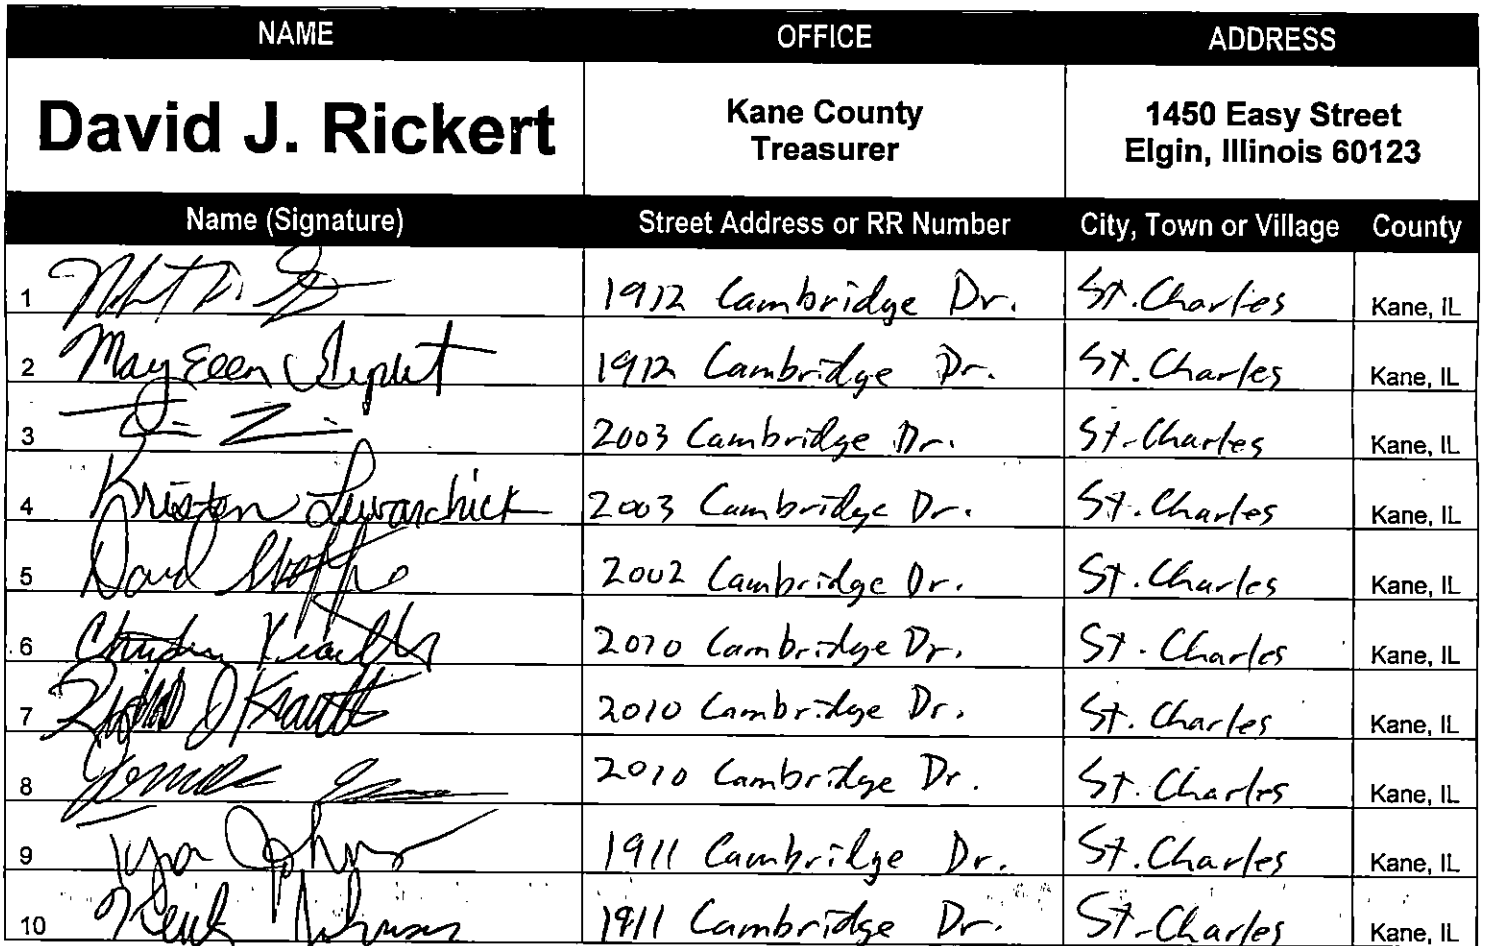 NAME OFFICE ADDRESS
David J. Rickert Kane County Treasurer 1450 Easy Street Elgin, Illinois 60123
Name (Signature) Street Address or RR Number City, Town or Village County
1 1912 Cambridge Dr. St. Charles Kane, IL
2 1912 Cambridge Dr. St. Charles Kane, IL
3 2003 Cambridge Dr. St-Charles Kane, IL
4 Kristen 2003 Cambridge Dr. St. Charles Kane, IL
5 David 2002 Cambridge Dr. St. Charles Kane, IL
6 2010 Cambridge Dr. St. Charles Kane, IL
7 2010 Cambridge Dr. St. Charles Kane, IL
8 2010 Cambridge Dr. St. Charles Kane, IL
9 1911 Cambridge Dr. St. Charles Kane, IL
10 1911 Cambridge Dr. St-Charles Kane, IL